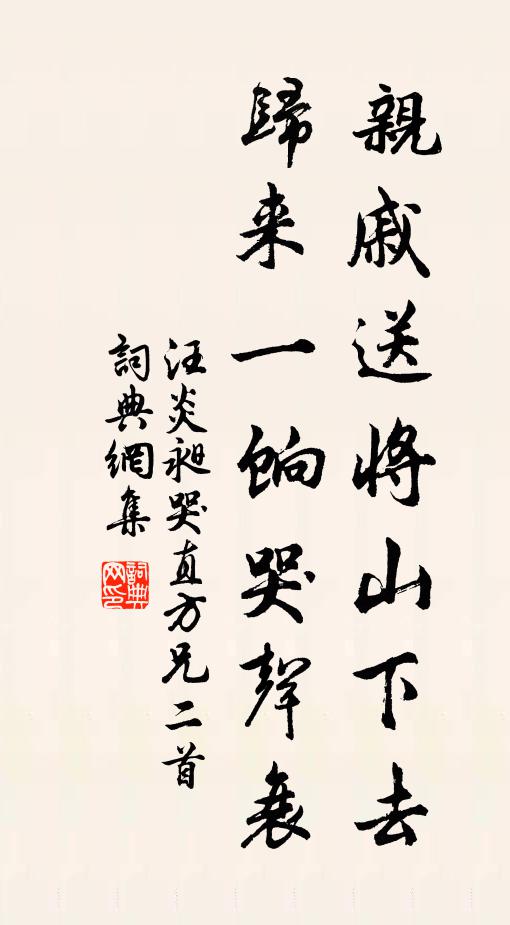 親戚送將山下去
歸来一餉哭聲衰
汪炎昶哭直方兄二首
詞典網集
詞典網印